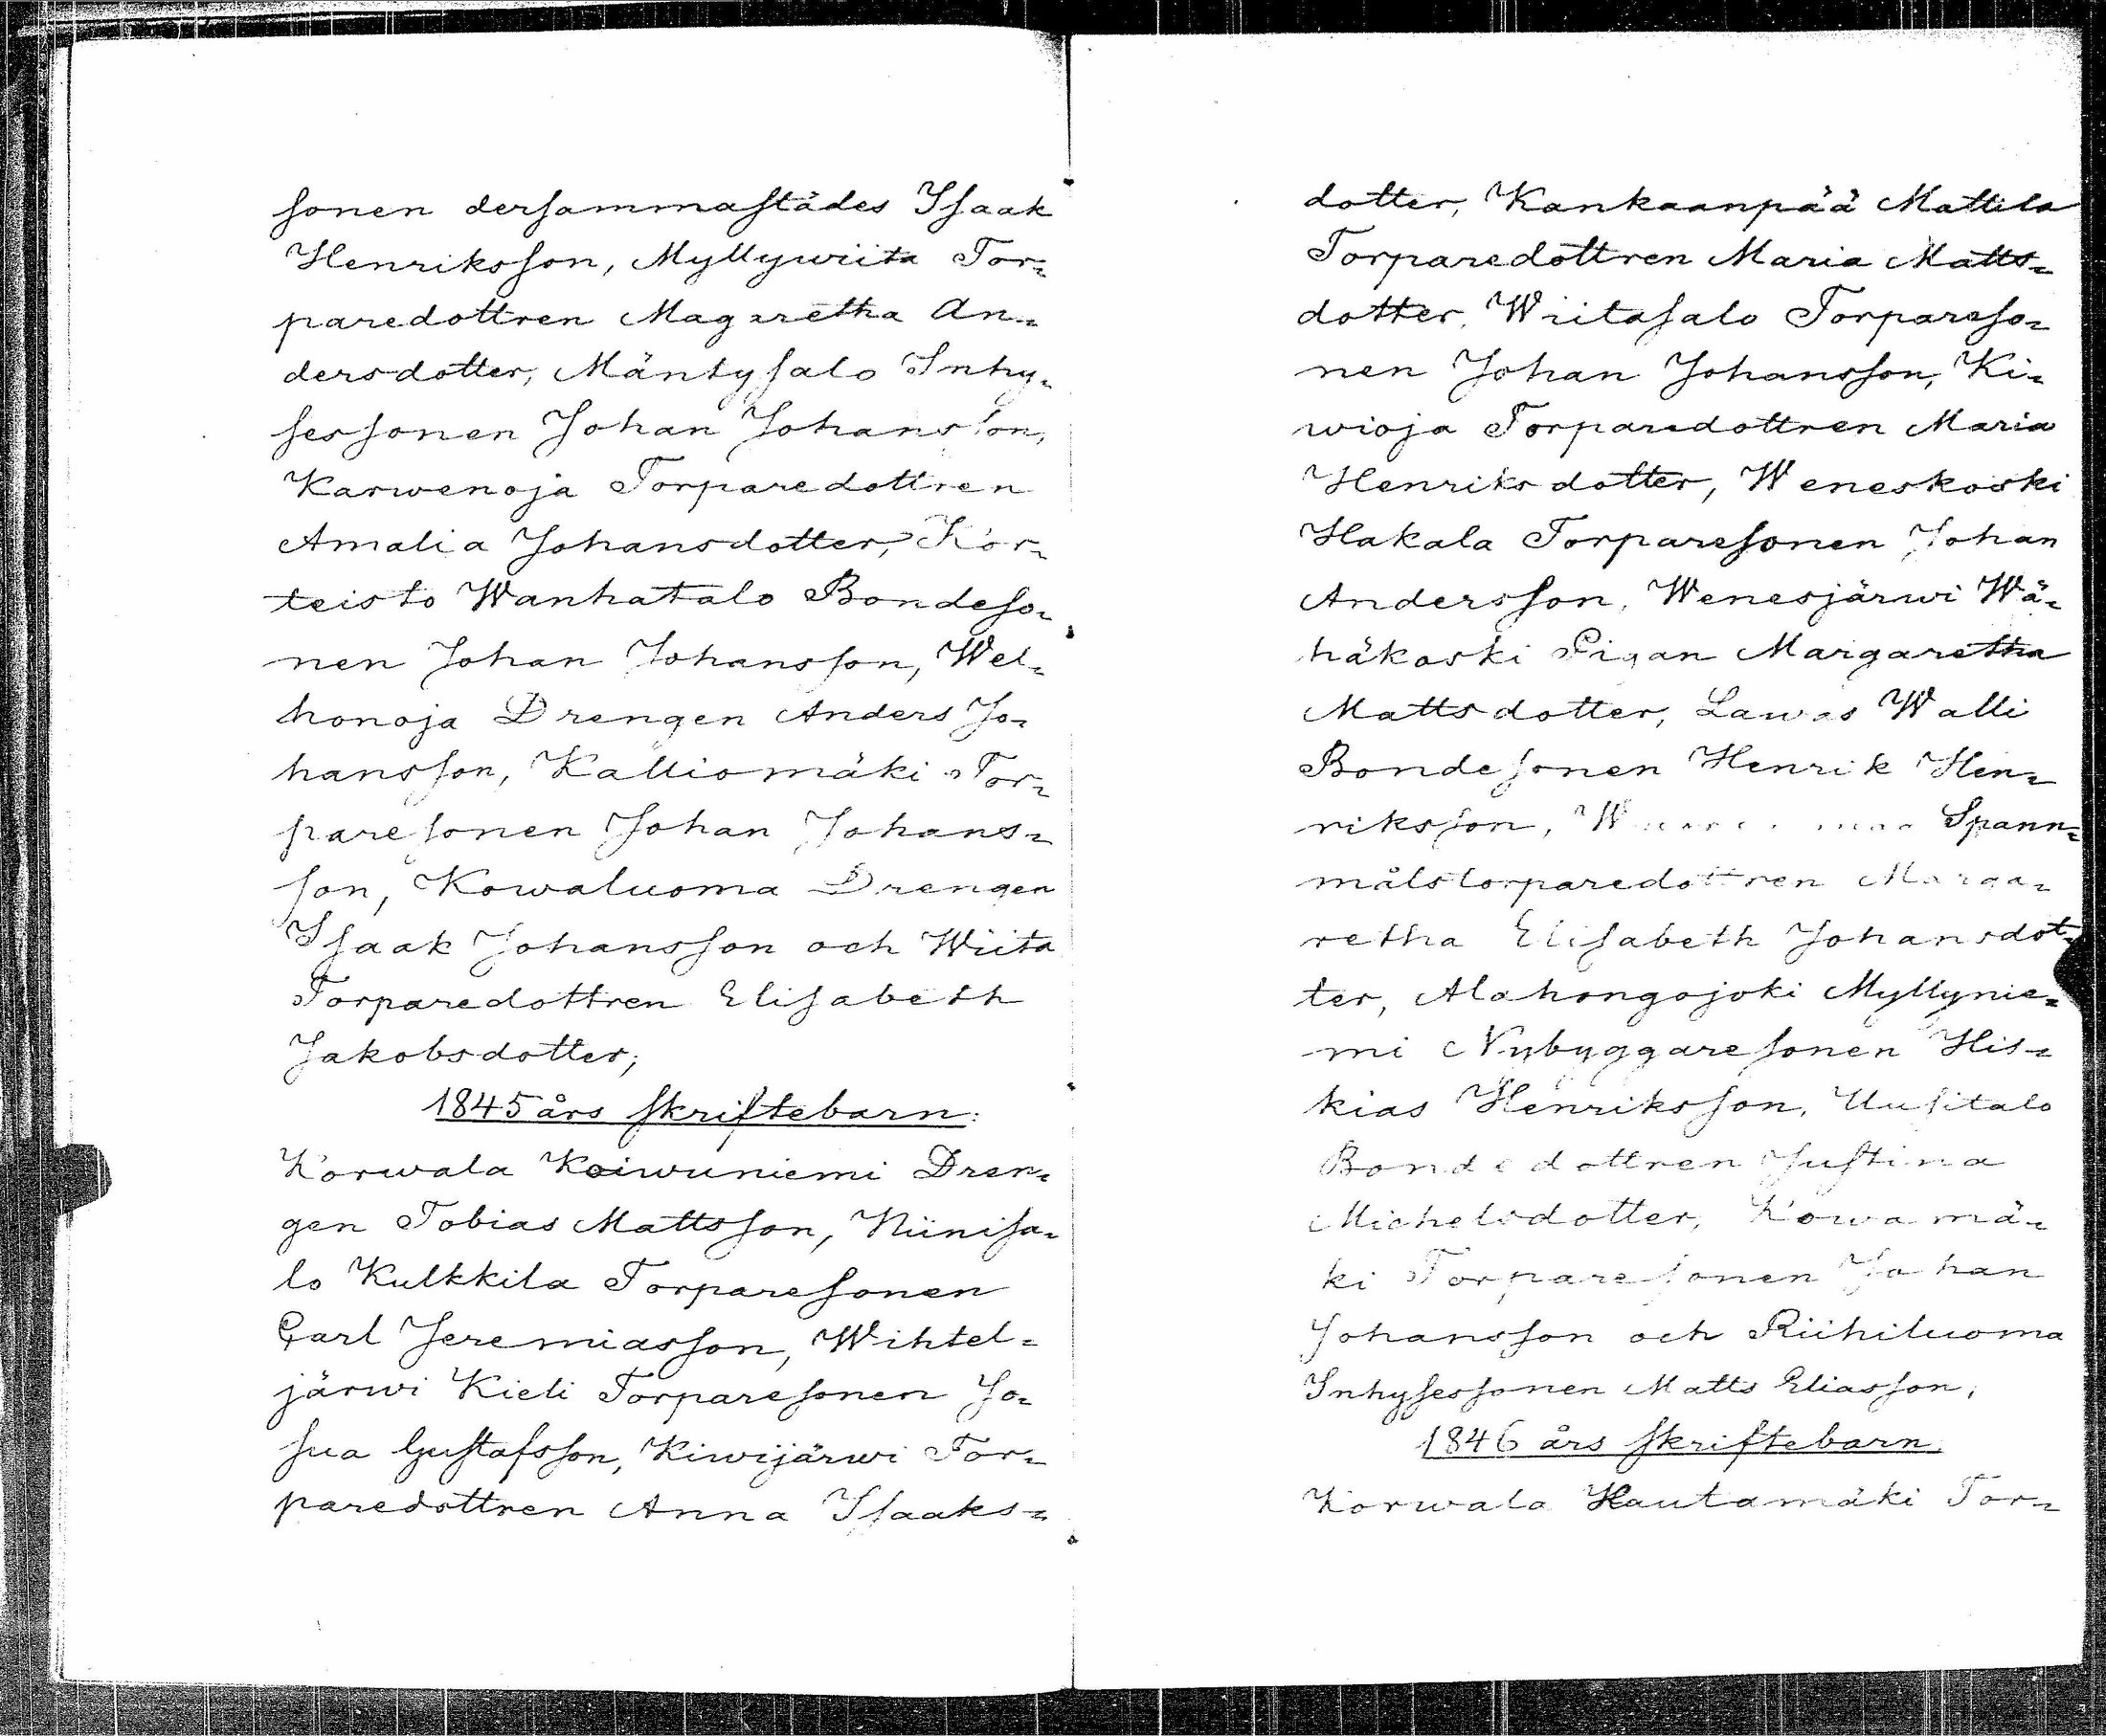 sonen dersammastädes Isaak
Henriksson, Myllywiita Tor=
paredottren Magaretha An=
dersdotter, Mäntysalo Inhy=
sessonen Johan Johansson,
Karwenoja Torparedottren
Amalia Johansdotter, Kor=
teisto Wanhatalo Bondeso=
nen Johan Johansson, Wel=
honoja Drengen Anders Jo=
hansson, Kalliomäki Tor=
paresonen Johan Johans=
son, Kowaluoma Drengen
Isaak Johansson och Wiita
Torparedottren Elisabeth
Jakobsdotter;
1845 års skriftebarn:
Korwala Koiwuniemi Dren=
gen Tobias Mattsson, Niinisa=
lo Kulkkila Torparesonen
Carl Jeremiasson, Wihtel=
järwi Kieli Torparesonen Jo=
sua Gustafsson, Kiwijärwi Tor=
paredottren Anna Isaaks=
dotter, Kankaanpää Mattila
Torparedottren Maria Matts=
dotter, Wiitasalo Torpareso=
nen Johan Johansson, Ki=
wioja Torparedottren Maria
Henriksdotter, Weneskoski
Hakala Torparesonen Johan
Andersson, Wenesjärwi Wä=
häkoski Pigan Margaretha
Mattsdotter, Lawas Walli
Bondesonen Henrik Hen=
riksson, Spann=
målstorparedottren Marga=
retha Elisabeth Johansdot=
ter, Alahongojoki Myllynie=
mi Nybyggaresonen His=
kias Henriksson, Uusitalo
Bondedottren Justina
Michelsdotter, Kowamä=
ki Torparesonen Johan
Johansson och Riihiluoma
Inhysessonen Matts Eliasson;
1846 års skriftebarn
Korwala Hautamäki Tor=